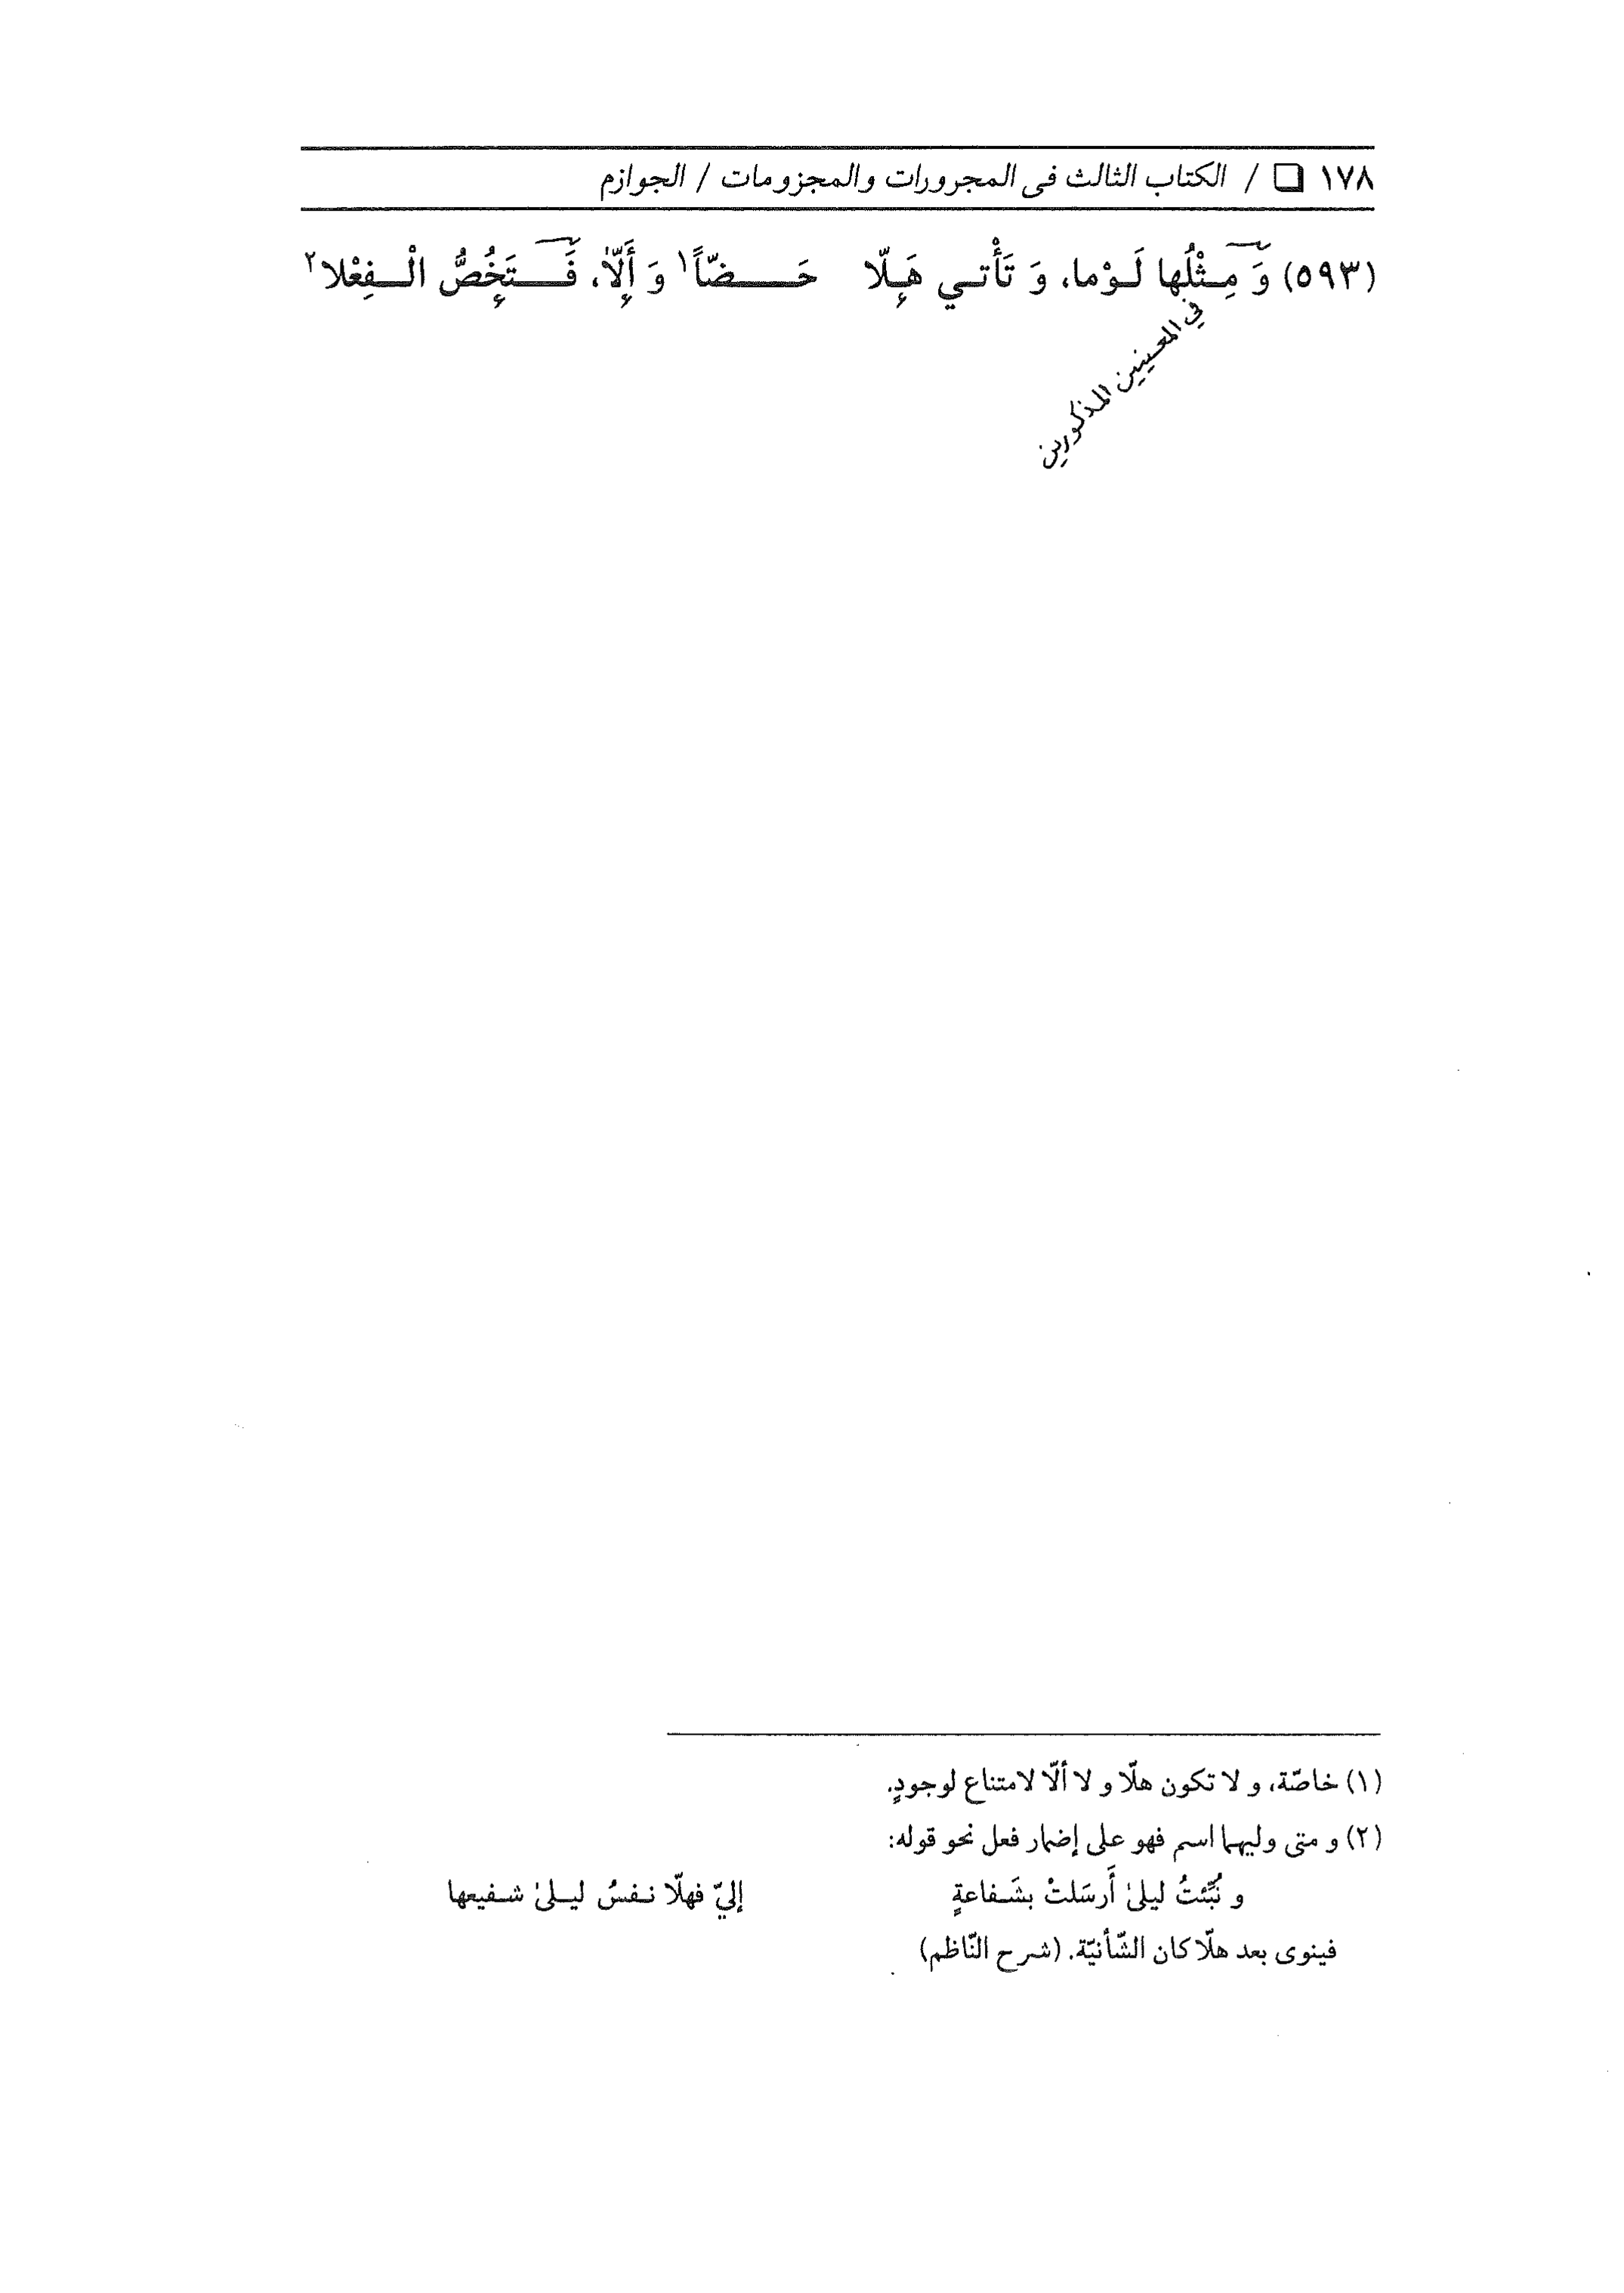 ١٧٨ □ / الكتاب الثالث فى المجرورات والمجزومات / الجوازم
(٥٩٣) وَ مِـثْلُها لَـوْما، وَ تَأْتـي هَـلّا حَـضّاً١ وَ أَلّا، فَـتَخُصُّ الْـفِعْلا٢
في المعنيين المذكورين
(١) خاصّة، و لا تكون هلّا و لا ألّا لامتناع لوجودٍ.
(٢) و متى وليهما اسم فهو على إضمار فعل نحو قوله:
و نُبِّئتُ ليلىٰ أَرسَلتْ بشَـفاعةٍ إليّ فهلّا نـفسُ ليـلىٰ شـفيعها
فينوى بعد هلّا كان الشّأنيّة. (شرح النّاظم)